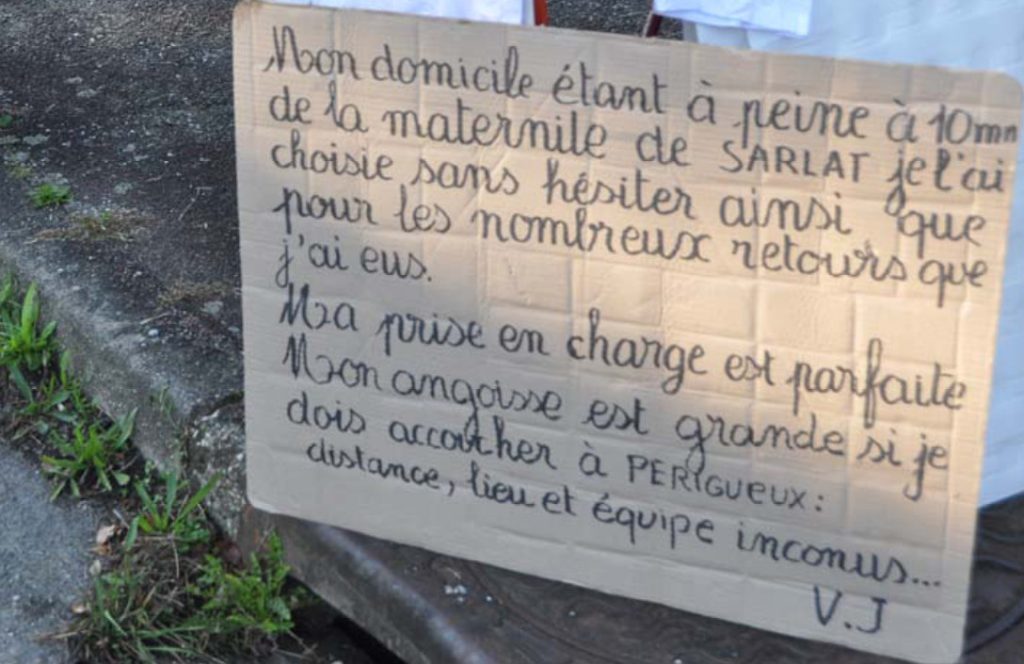 Mon domicile étant à peine à 10mn
de la maternile de SARLAT je l'ai
choisie sans hésiter ainsi que
pour les nombreux retours que
j'ai eus.
Ma prise en charge est parfaite
Mon angoisse est grande si je
dois accoucher à PERIGUEUX :
distance, lieu et équipe inconus...
V.J